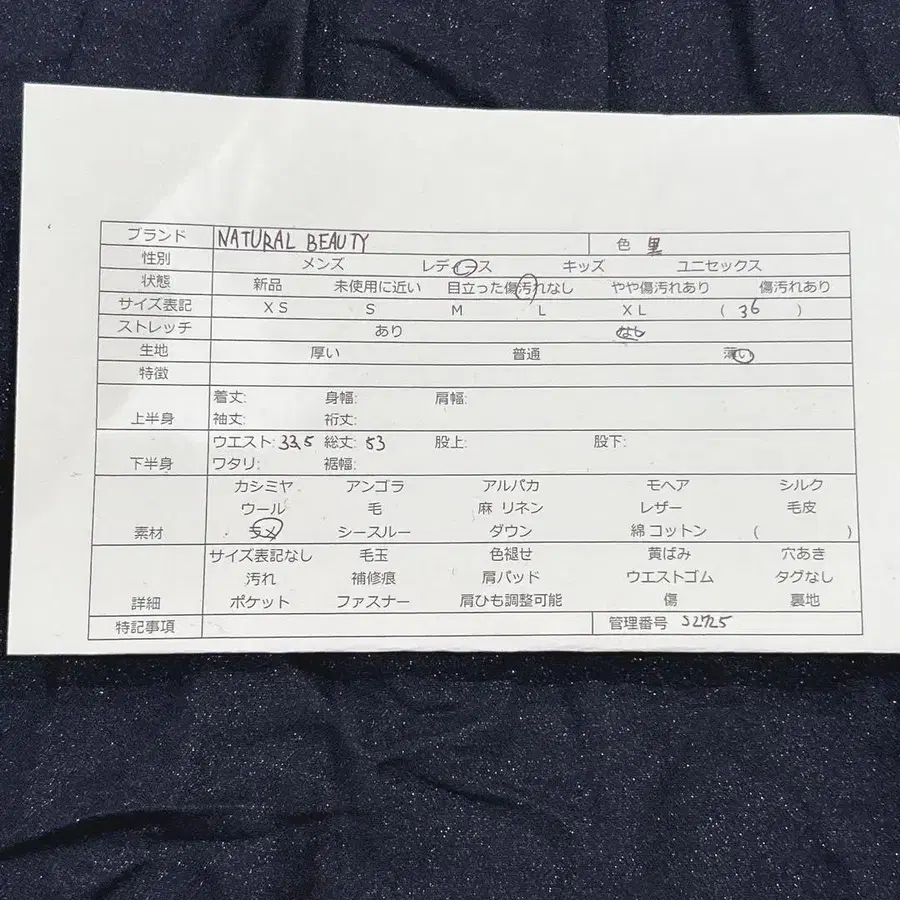 ブランド NATURAL BEAUTY 色 黒
性別 メンズ レディース キッズ ユニセックス
状態 新品 未使用に近い 目立った傷汚れなし やや傷汚れあり 傷汚れあり
サイズ表記 XS S M L XL ( 36 )
ストレッチ あり なし
生地 厚い 普通 薄い
特徴
着丈: 身幅: 肩幅:
上半身 袖丈: 裄丈:
ウエスト: 33.5 総丈: 53 股上: 股下:
下半身 ワタリ: 裾幅:
カシミヤ アンゴラ アルパカ モヘア シルク
ウール 毛 麻 リネン レザー 毛皮
素材 ラメ シースルー ダウン 綿 コットン ( )
サイズ表記なし 毛玉 色褪せ 黄ばみ 穴あき
汚れ 補修痕 肩パッド ウエストゴム タグなし
詳細 ポケット ファスナー 肩ひも調整可能 傷 裏地
特記事項 管理番号 S2725